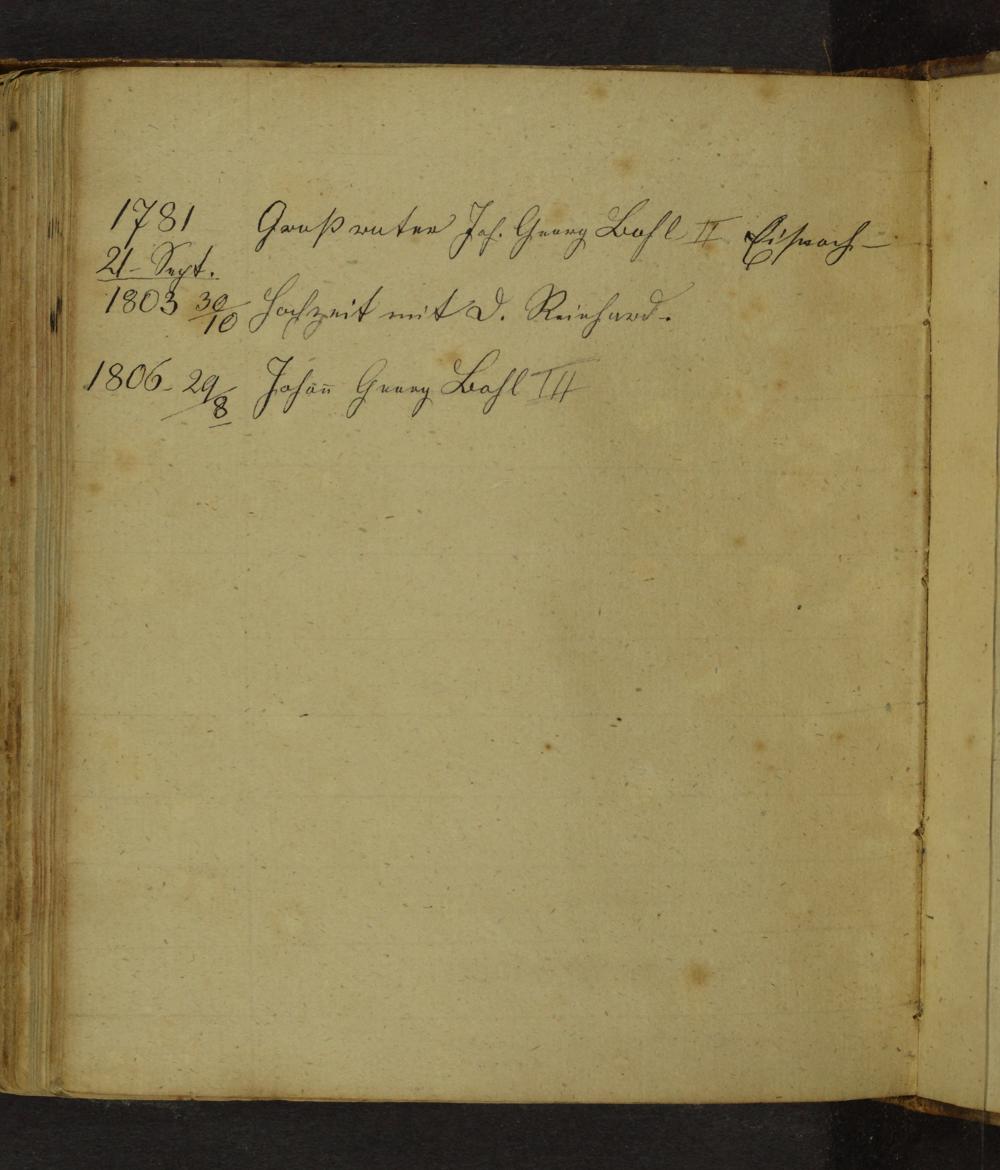 1781 Großvater Joh. Georg Bohl II
21 - Sept.
1803 30/10 Hochzeit mit D. Reinhard.
1806 - 29/8 Johan̅n̅ Georg Bohl III